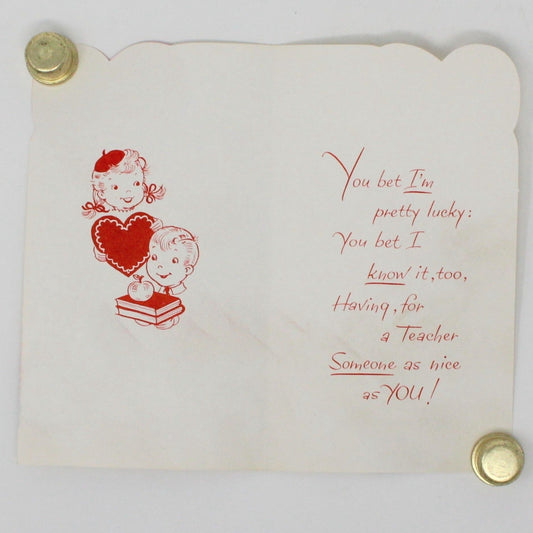 You bet I'm
pretty lucky:
You bet I
know it, too,
Having, for
a Teacher
Someone as nice
as YOU!